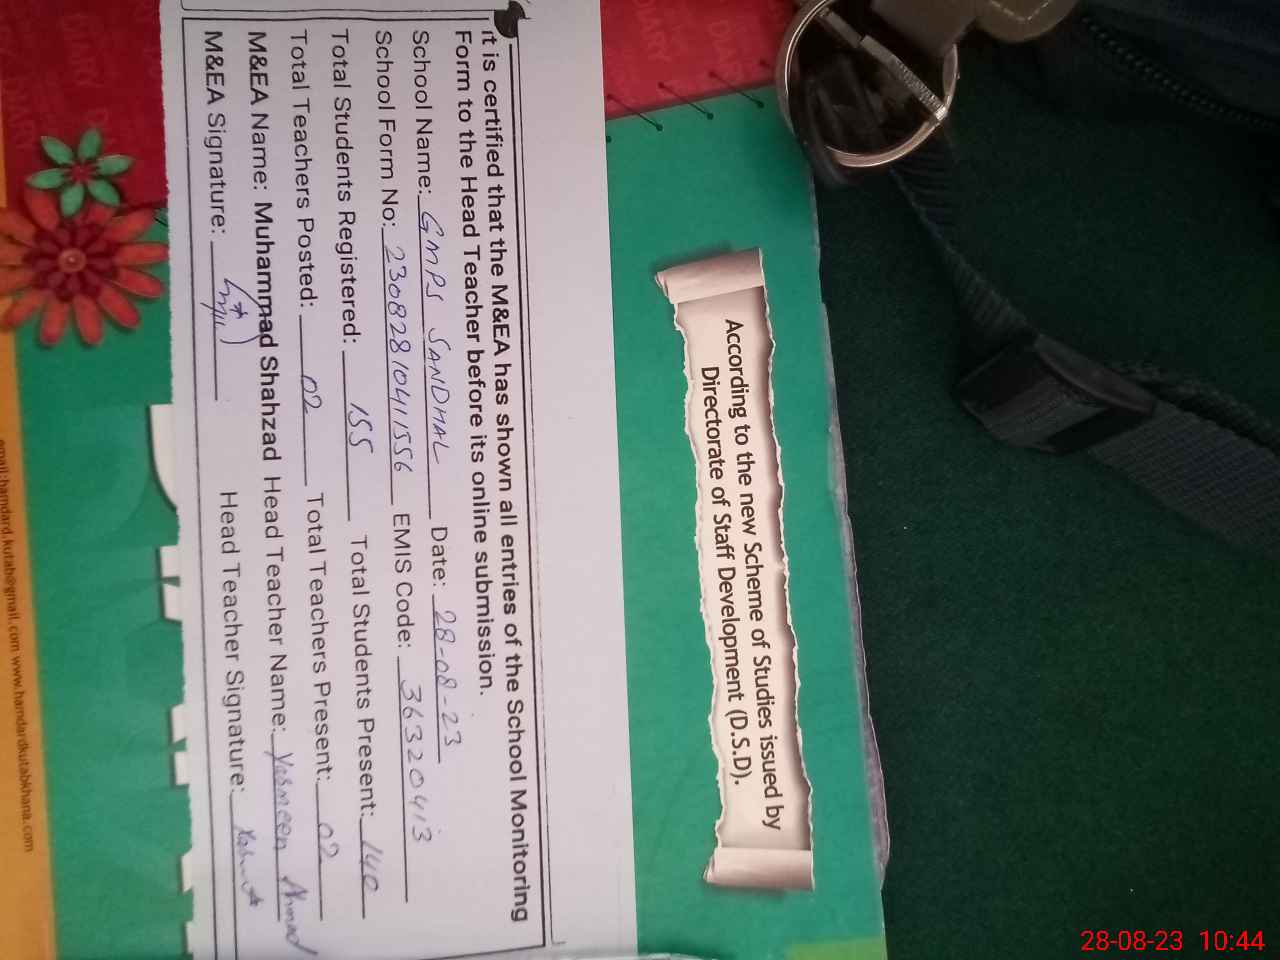 It is certified that the M&EA has shown all entries of the School Monitoring
Form to the Head Teacher before its online submission.
School Name: GMPS SANDHAL Date: 28-08-23
School Form No: 2308281041556 EMIS Code: 36320413
Total Students Registered: 155 Total Students Present: 140
Total Teachers Posted: 02 Total Teachers Present: 02
M&EA Name: Muhammad Shahzad Head Teacher Name: Yasmeen Ahmad
M&EA Signature: Head Teacher Signature:
According to the new Scheme of Studies issued by
Directorate of Staff Development (D.S.D).
email:hamdard.kutab@gmail.com www.hamdardkutabkhana.com
DIARY
28-08-23 10:44